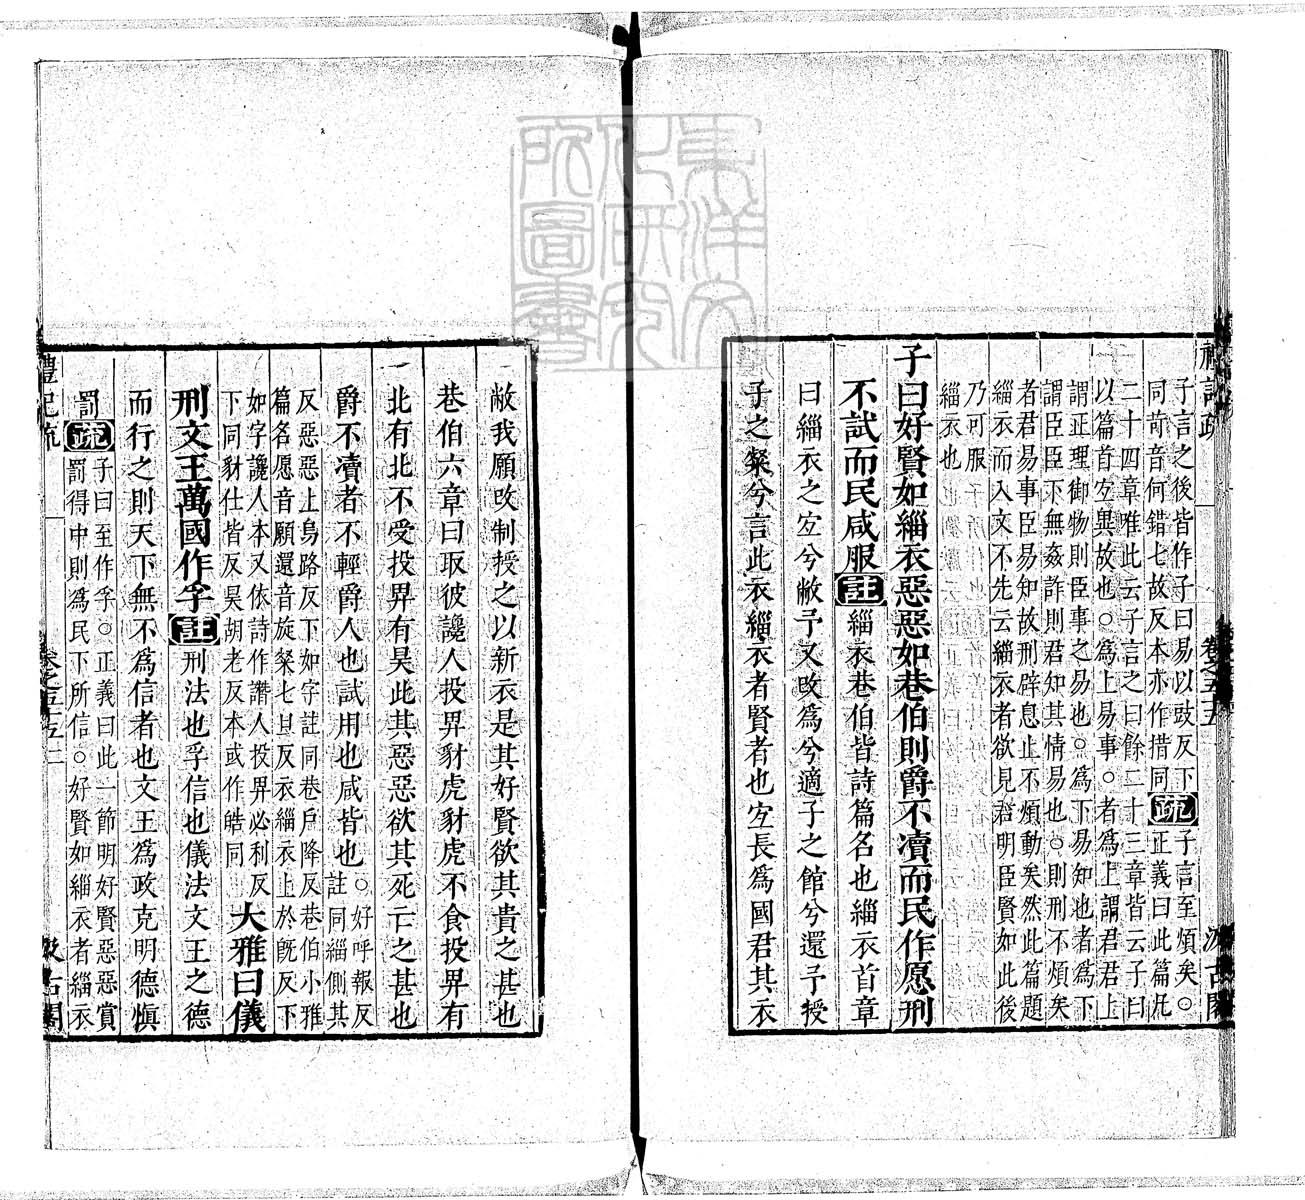 禮記疏 卷之五十五 汲古閣
子言之後皆作子曰易以豉反下
同苛音何錯七故反本亦作措同
疏
子言至煩矣○
正義曰此篇凡
二十四章唯此云子言之曰餘二十三章皆云子曰
以篇首宜異故也○爲上易事○者爲上謂君君上
謂正理御物則臣事之易也○爲下易知也者爲下
謂臣臣下無姦詐則君知其情易也○則刑不煩矣
者君易事臣易知故刑辟息止不煩動矣然此篇題
緇衣而入文不先云緇衣者欲見君明臣賢如此後
乃可服
緇衣也
子曰好賢如緇衣惡惡如巷伯則爵不瀆而民作愿刑
不試而民咸服註緇衣巷伯皆詩篇名也緇衣首章
曰緇衣之宜兮敝予又改爲兮適子之館兮還予授
子之粲兮言此衣緇衣者賢者也宜長爲國君其衣
敝我願改制授之以新衣是其好賢欲其貴之甚也
巷伯六章曰取彼讒人投畀豺虎豺虎不食投畀有
北有北不受投畀有昊此其惡惡欲其死亡之甚也
爵不瀆者不輕爵人也試用也咸皆也
○好呼報反
註同緇側其
反惡惡上烏路反下如字註同巷戶降反巷伯小雅
篇名愿音願還音旋粲七旦反衣緇衣上於旣反下
如字讒人本又依詩作譖人投畀必利反
下同豺仕皆反昊胡老反本或作皓同
大雅曰儀
刑文王萬國作孚註刑法也孚信也儀法文王之德
而行之則天下無不爲信者也文王爲政克明德慎
罰疏
子曰至作孚○正義曰此一節明好賢惡惡賞
罰得中則爲民下所信○好賢如緇衣者緇衣
禮記疏 卷之五十五 二 汲古閣